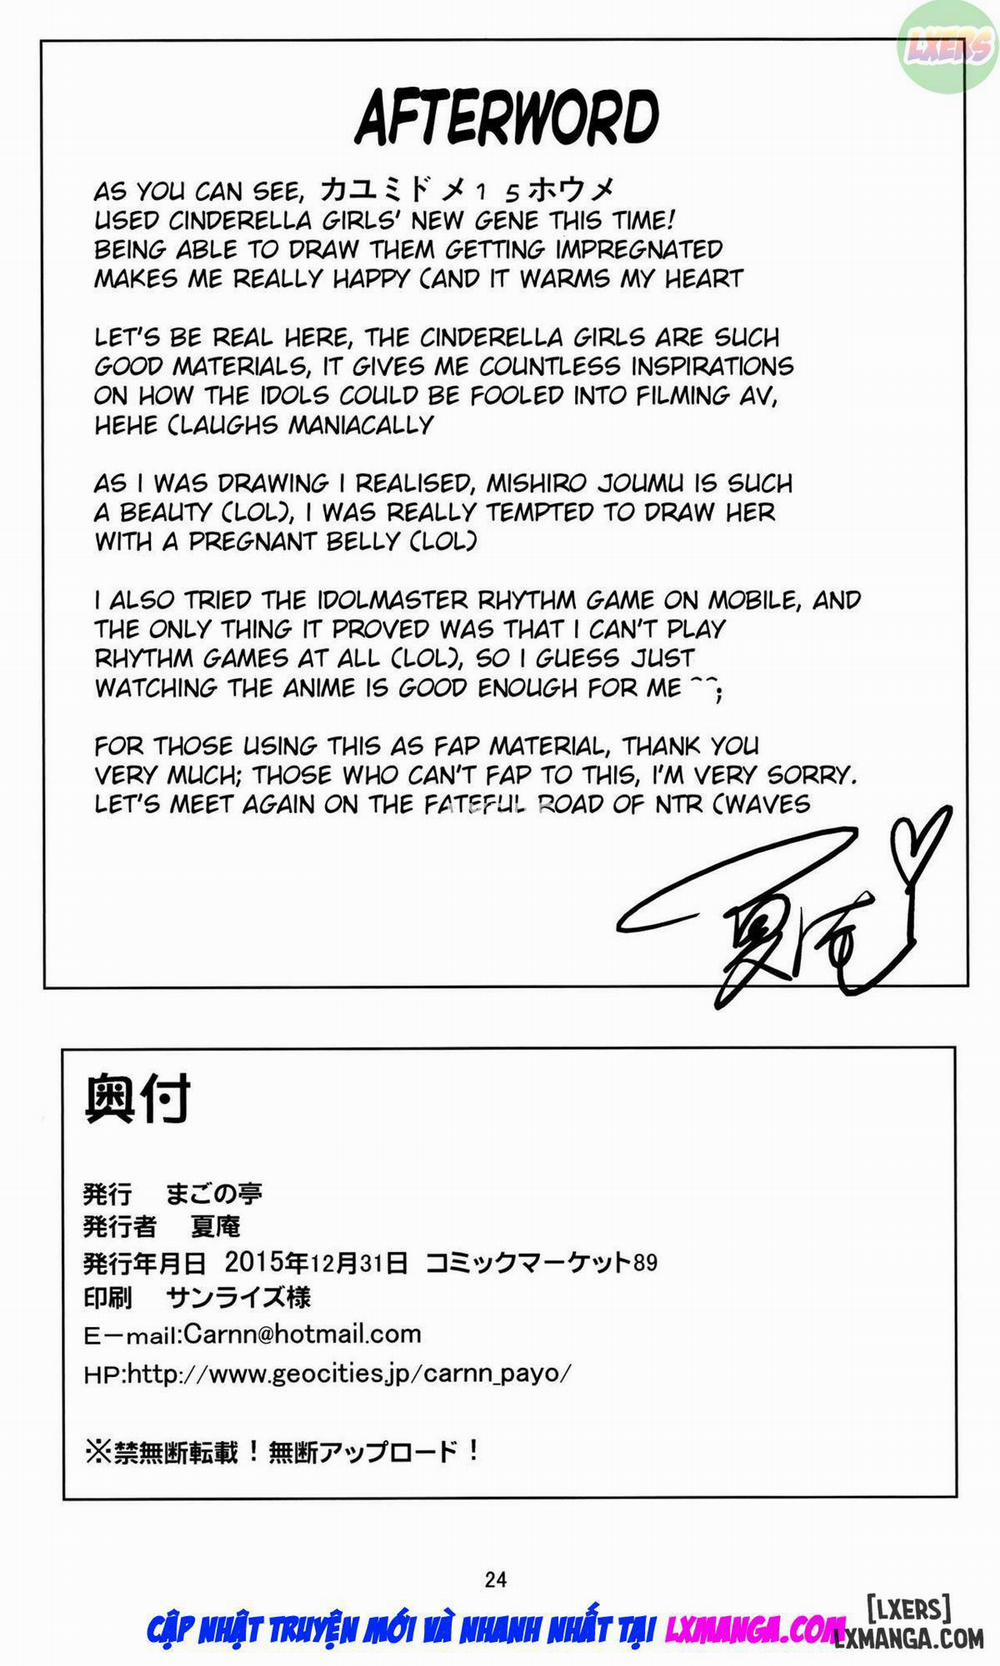 LXERS
AFTERWORD
AS YOU CAN SEE, カユミドメ15ホウメ
USED CINDERELLA GIRLS' NEW GENE THIS TIME!
BEING ABLE TO DRAW THEM GETTING IMPREGNATED
MAKES ME REALLY HAPPY (AND IT WARMS MY HEART
LET'S BE REAL HERE, THE CINDERELLA GIRLS ARE SUCH
GOOD MATERIALS, IT GIVES ME COUNTLESS INSPIRATIONS
ON HOW THE IDOLS COULD BE FOOLED INTO FILMING AV,
HEHE (LAUGHS MANIACALLY
AS I WAS DRAWING I REALISED, MISHIRO JOUMU IS SUCH
A BEAUTY (LOL), I WAS REALLY TEMPTED TO DRAW HER
WITH A PREGNANT BELLY (LOL)
I ALSO TRIED THE IDOLMASTER RHYTHM GAME ON MOBILE, AND
THE ONLY THING IT PROVED WAS THAT I CAN'T PLAY
RHYTHM GAMES AT ALL (LOL), SO I GUESS JUST
WATCHING THE ANIME IS GOOD ENOUGH FOR ME ^^;
FOR THOSE USING THIS AS FAP MATERIAL, THANK YOU
VERY MUCH; THOSE WHO CAN'T FAP TO THIS, I'M VERY SORRY.
LET'S MEET AGAIN ON THE FATEFUL ROAD OF NTR (WAVES
夏庵
奥付
発行 まごの亭
発行者 夏庵
発行年月日 2015年12月31日 コミックマーケット89
印刷 サンライズ様
E－mail:Carnn@hotmail.com
HP:http://www.geocities.jp/carnn_payo/
※禁無断転載！無断アップロード！
24
CẬP NHẬT TRUYỆN MỚI VÀ NHANH NHẤT TẠI LXMANGA.COM
[LXERS]
LXMANGA.COM